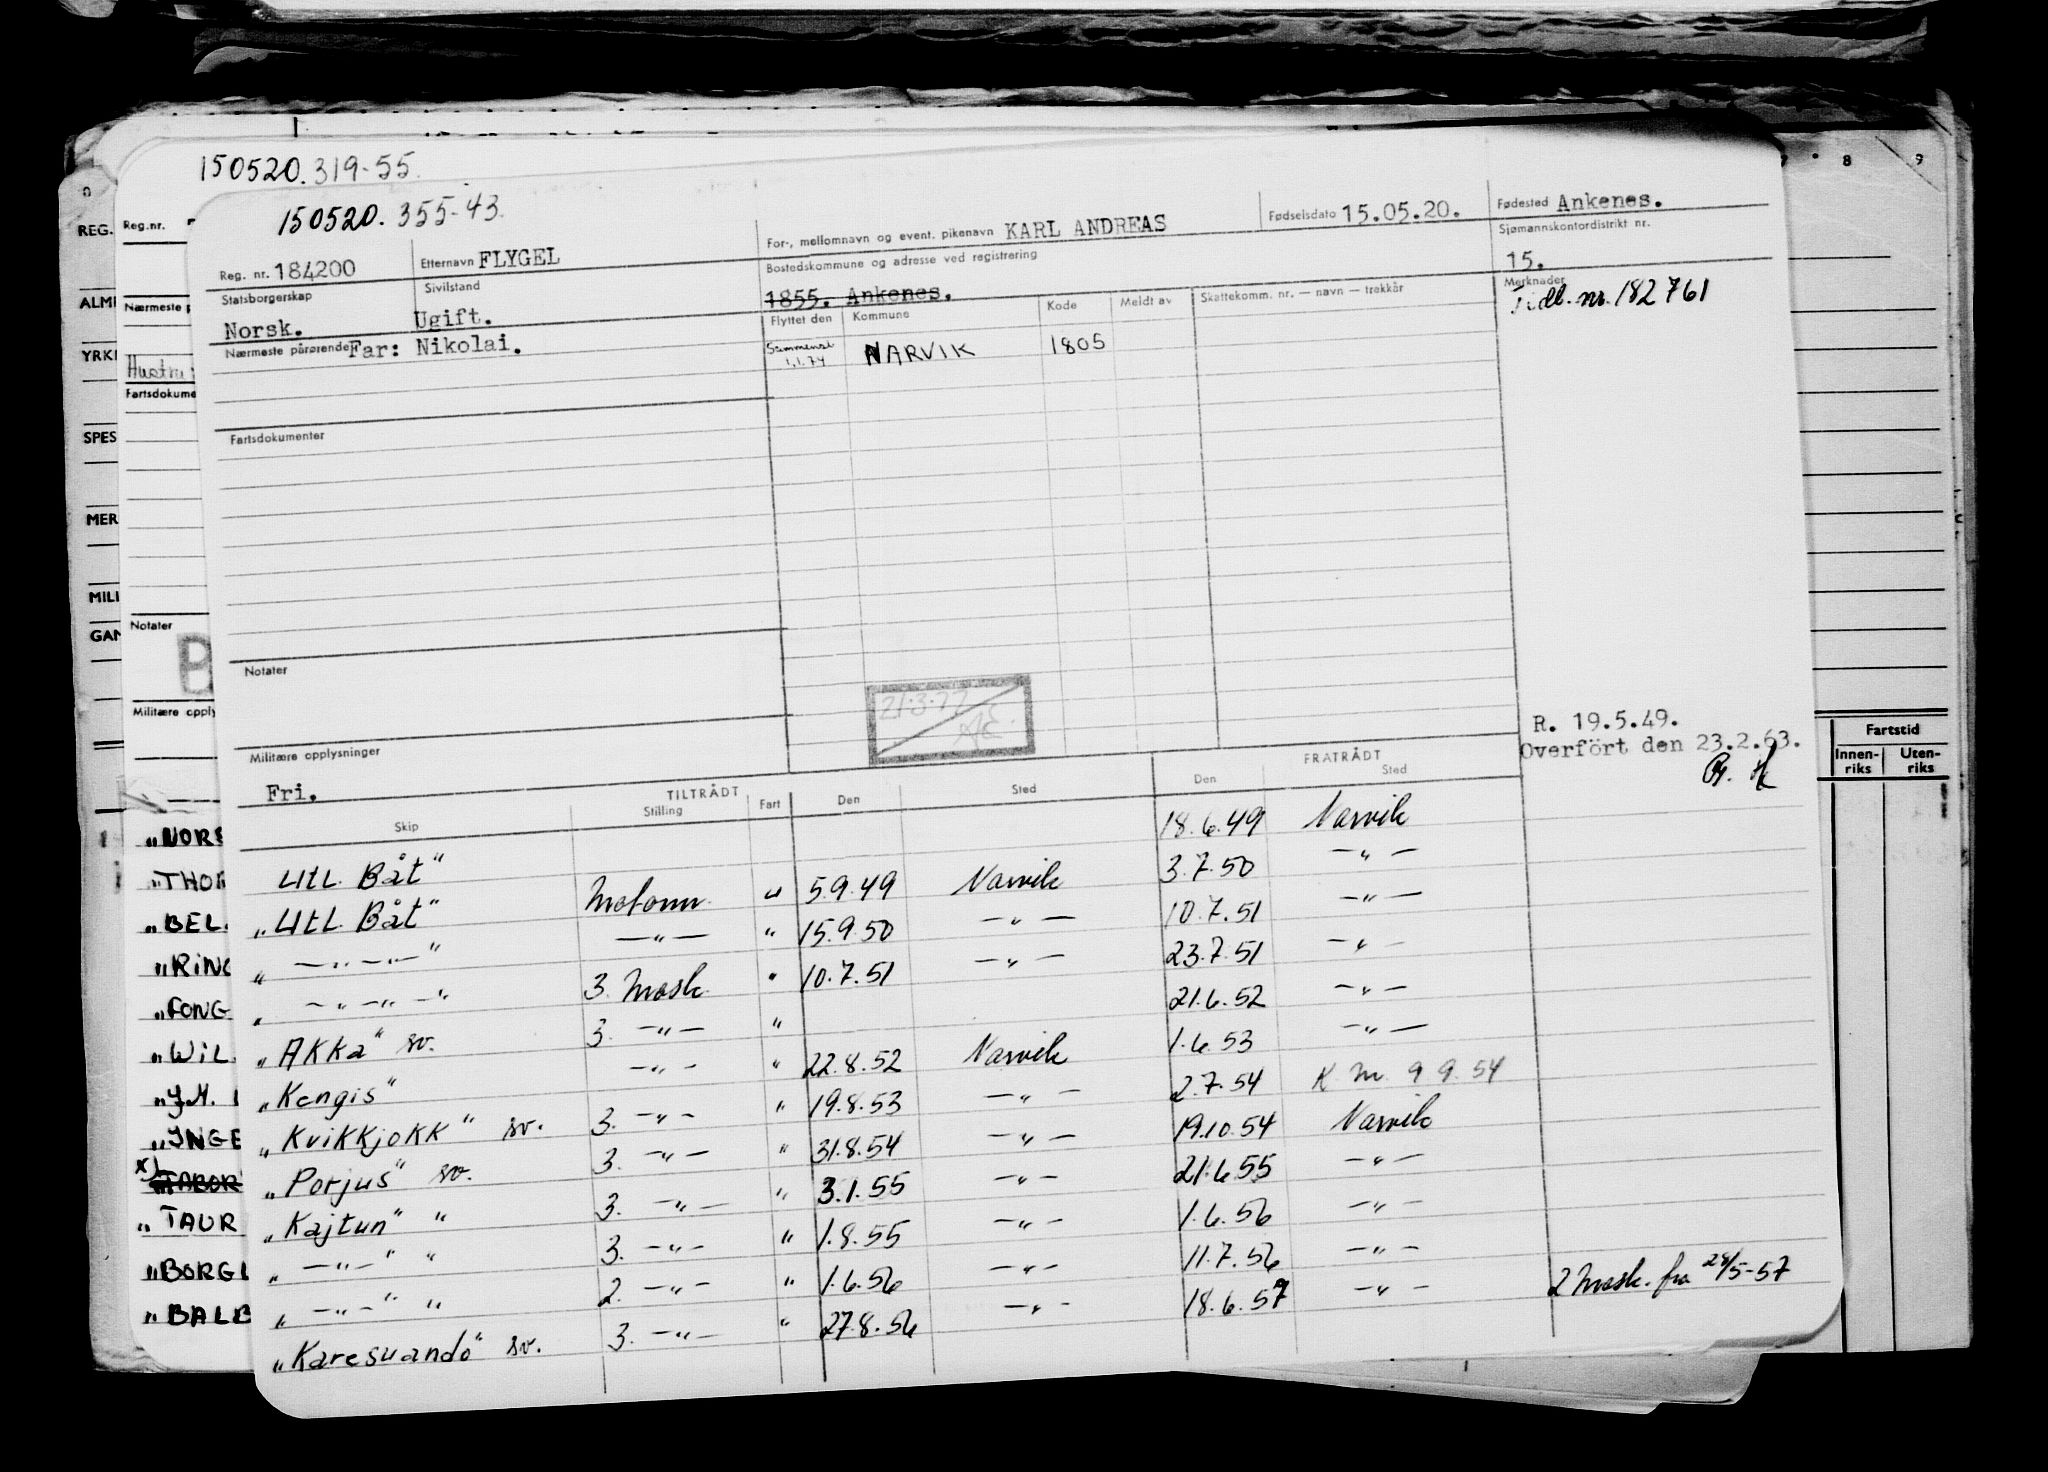 150520.319-55.
150520.355-43.
Reg. nr. 184200
Etternavn FLYGEL
For-, mellomnavn og event. pikenavn KARL ANDREAS
Fødselsdato 15.05.20.
Fødested Ankenes.
Statsborgerskap Norsk.
Sivilstand Ugift.
Bostedskommune og adresse ved registrering
1855. Ankenes.
Sjømannskontordistrikt nr.
15.
Nærmeste pårørende Far: Nikolai.
Flyttet den Kommune Kode Meldt av Skattekomm. nr. — navn — trekkår
1.1.74 NARVIK 1805
Merknader
Tidl. nr. 182761
Fartsdokumenter
Notater
21.3.77
Militære opplysninger
Fri.
R. 19.5.49.
Overført den 23.2.63.
TILTRÅDT FRATRÅDT
Skip Stilling Fart Den Sted Den Sted
Utl. Båt" 18.6.49 Narvik
"Utl. Båt" Motorm. " 5.9.49 Narvik 3.7.50 —"—
" —"—"—" —"— " 15.9.50 —"— 10.7.51 —"—
" —"—"—" 3. Mask. " 10.7.51 —"— 23.7.51 —"—
"Akka" sv. 3. —"— " 21.6.52 —"—
"Kengis" —"— " 22.8.52 Narvik 1.6.53 —"—
"Kvikkjokk" sv. 3. —"— " 19.8.53 —"— 2.7.54 K.M. 9 9. 54
"Porjus" sv. 3. —"— " 31.8.54 —"— 19.10.54 Narvik
"Kajtun" " 3. —"— " 3.1.55 —"— 21.6.55 —"—
" —"—" " 3. —"— " 1.8.55 —"— 1.6.56 —"—
" —"—" " 2. —"— " 1.6.56 —"— 11.7.56 —"—
"Karesuando" sv. 3. —"— " 27.8.56 —"— 18.6.57 —"— 2 Mask. fra 28/5-57
Reg.nr.
Nærmeste p
Hustru:
Fartsdokume
Notater
Militære opply
"NORS
"THOR
"BEL
"RING
"FONG
"WIL
"J.M.
"INGE
x) "TABOR
"TAUR
"BORGL
"BALB
REG.
ALM
YRK
SPES
MER
MILI
GAN
8 9
Fartstid
Innen-riks Uten-riks